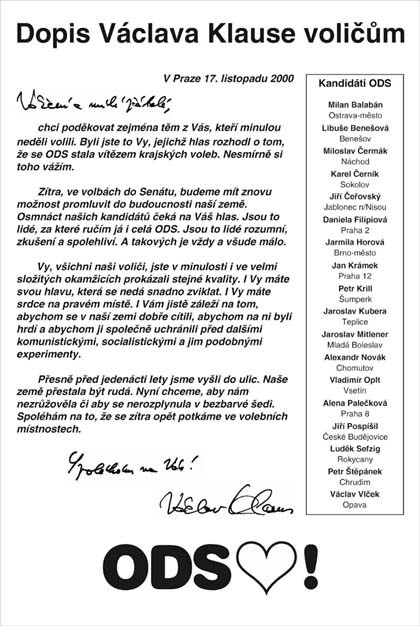 Dopis Václava Klause voličům
V Praze 17. listopadu 2000
Vážení a milí přátelé,
chci poděkovat zejména těm z Vás, kteří minulou
neděli volili. Byli jste to Vy, jejichž hlas rozhodl o tom,
že se ODS stala vítězem krajských voleb. Nesmírně si
toho vážím.
Zítra, ve volbách do Senátu, budeme mít znovu
možnost promluvit do budoucnosti naší země.
Osmnáct našich kandidátů čeká na Váš hlas. Jsou to
lidé, za které ručím já i celá ODS. Jsou to lidé rozumní,
zkušení a spolehliví. A takových je vždy a všude málo.
Vy, všichni naši voliči, jste v minulosti i ve velmi
složitých okamžicích prokázali stejné kvality. I Vy máte
svou hlavu, která se nedá snadno zviklat. I Vy máte
srdce na pravém místě. I Vám jistě záleží na tom,
abychom se v naší zemi dobře cítili, abychom na ni byli
hrdí a abychom ji společně uchránili před dalšími
komunistickými, socialistickými a jim podobnými
experimenty.
Přesně před jedenácti lety jsme vyšli do ulic. Naše
země přestala být rudá. Nyní chceme, aby nám
nezrůžověla či aby se nerozplynula v bezbarvé šedi.
Spoléhám na to, že se zítra opět potkáme ve volebních
místnostech.
Spoléhám na Vás!
Václav Klaus
Kandidáti ODS
Milan Balabán
Ostrava-město
Libuše Benešová
Benešov
Miloslav Čermák
Náchod
Karel Černík
Sokolov
Jiří Čeřovský
Jablonec n/Nisou
Daniela Filipiová
Praha 2
Jarmila Horová
Brno-město
Jan Krámek
Praha 12
Petr Krill
Šumperk
Jaroslav Kubera
Teplice
Jaroslav Mitlener
Mladá Boleslav
Alexandr Novák
Chomutov
Vladimír Oplt
Vsetín
Alena Palečková
Praha 8
Jiří Pospíšil
České Budějovice
Luděk Sefzig
Rokycany
Petr Štěpánek
Chrudim
Václav Vlček
Opava
ODS♡!